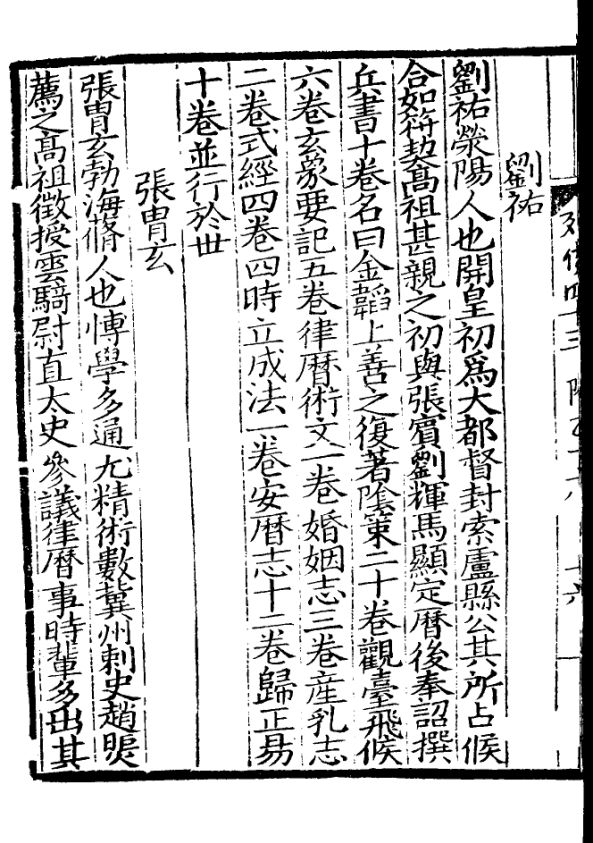 劉祐
劉祐滎陽人也開皇初爲大都督封索盧縣公其所占候
合如符契髙祖甚親之初與張賓劉輝馬顯定曆後奉詔撰
兵書十卷名曰金韜上善之復著陰策二十卷觀臺飛候
六卷玄象要記五卷律曆術文一卷婚姻志三卷産乳志
二卷式經四卷四時立成法一卷安曆志十二卷歸正易
十卷並行於世
張胄玄
張胄玄勃海蓨人也愽學多通尤精術數冀州刺史趙煚
薦之髙祖徵授雲騎尉直太史參議律曆事時輩多出其